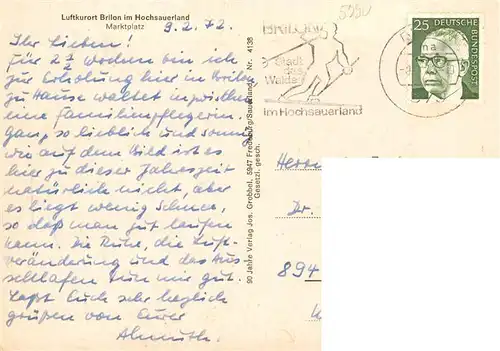 Luftkurort Brilon im Hochsauerland
Marktplatz
9.2.72
Ihr Lieben!
Für 2 1/2 Wochen bin ich
zur Erholung hier in Brilon
zu Hause waltet inzwischen
eine Familienpflegerin.
Ganz so lieblich und sonnig
wie auf dem Bild ist es
hier zu dieser Jahreszeit
natürlich nicht, aber
es liegt wenig Schnee,
so daß man gut laufen
kann. Die Ruhe, die Luft-
veränderung und das Aus-
schlafen tun mir gut.
Laßt Euch sehr herzlich
grüßen von Eurer
Almuth.
90 Jahre Verlag Jos. Grobbel, 5947 Fredeburg/Sauerland Nr. 4138
Gesetzl. gesch.
5950
Brilon
Stadt
des
Waldes
im Hochsauerland
25
DEUTSCHE
BUNDESPOST
Herrn
Dr.
894